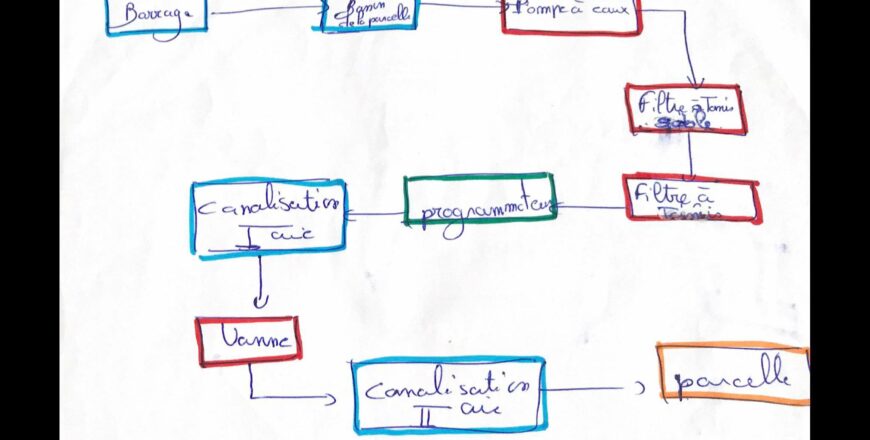 Barrage
Bassin
de la parcelle
Pompe à eaux
Filtre à Tamis
sable
Filtre à
Tamis
programmateur
Canalisation
I aire
Vanne
Canalisation
II aire
parcelle